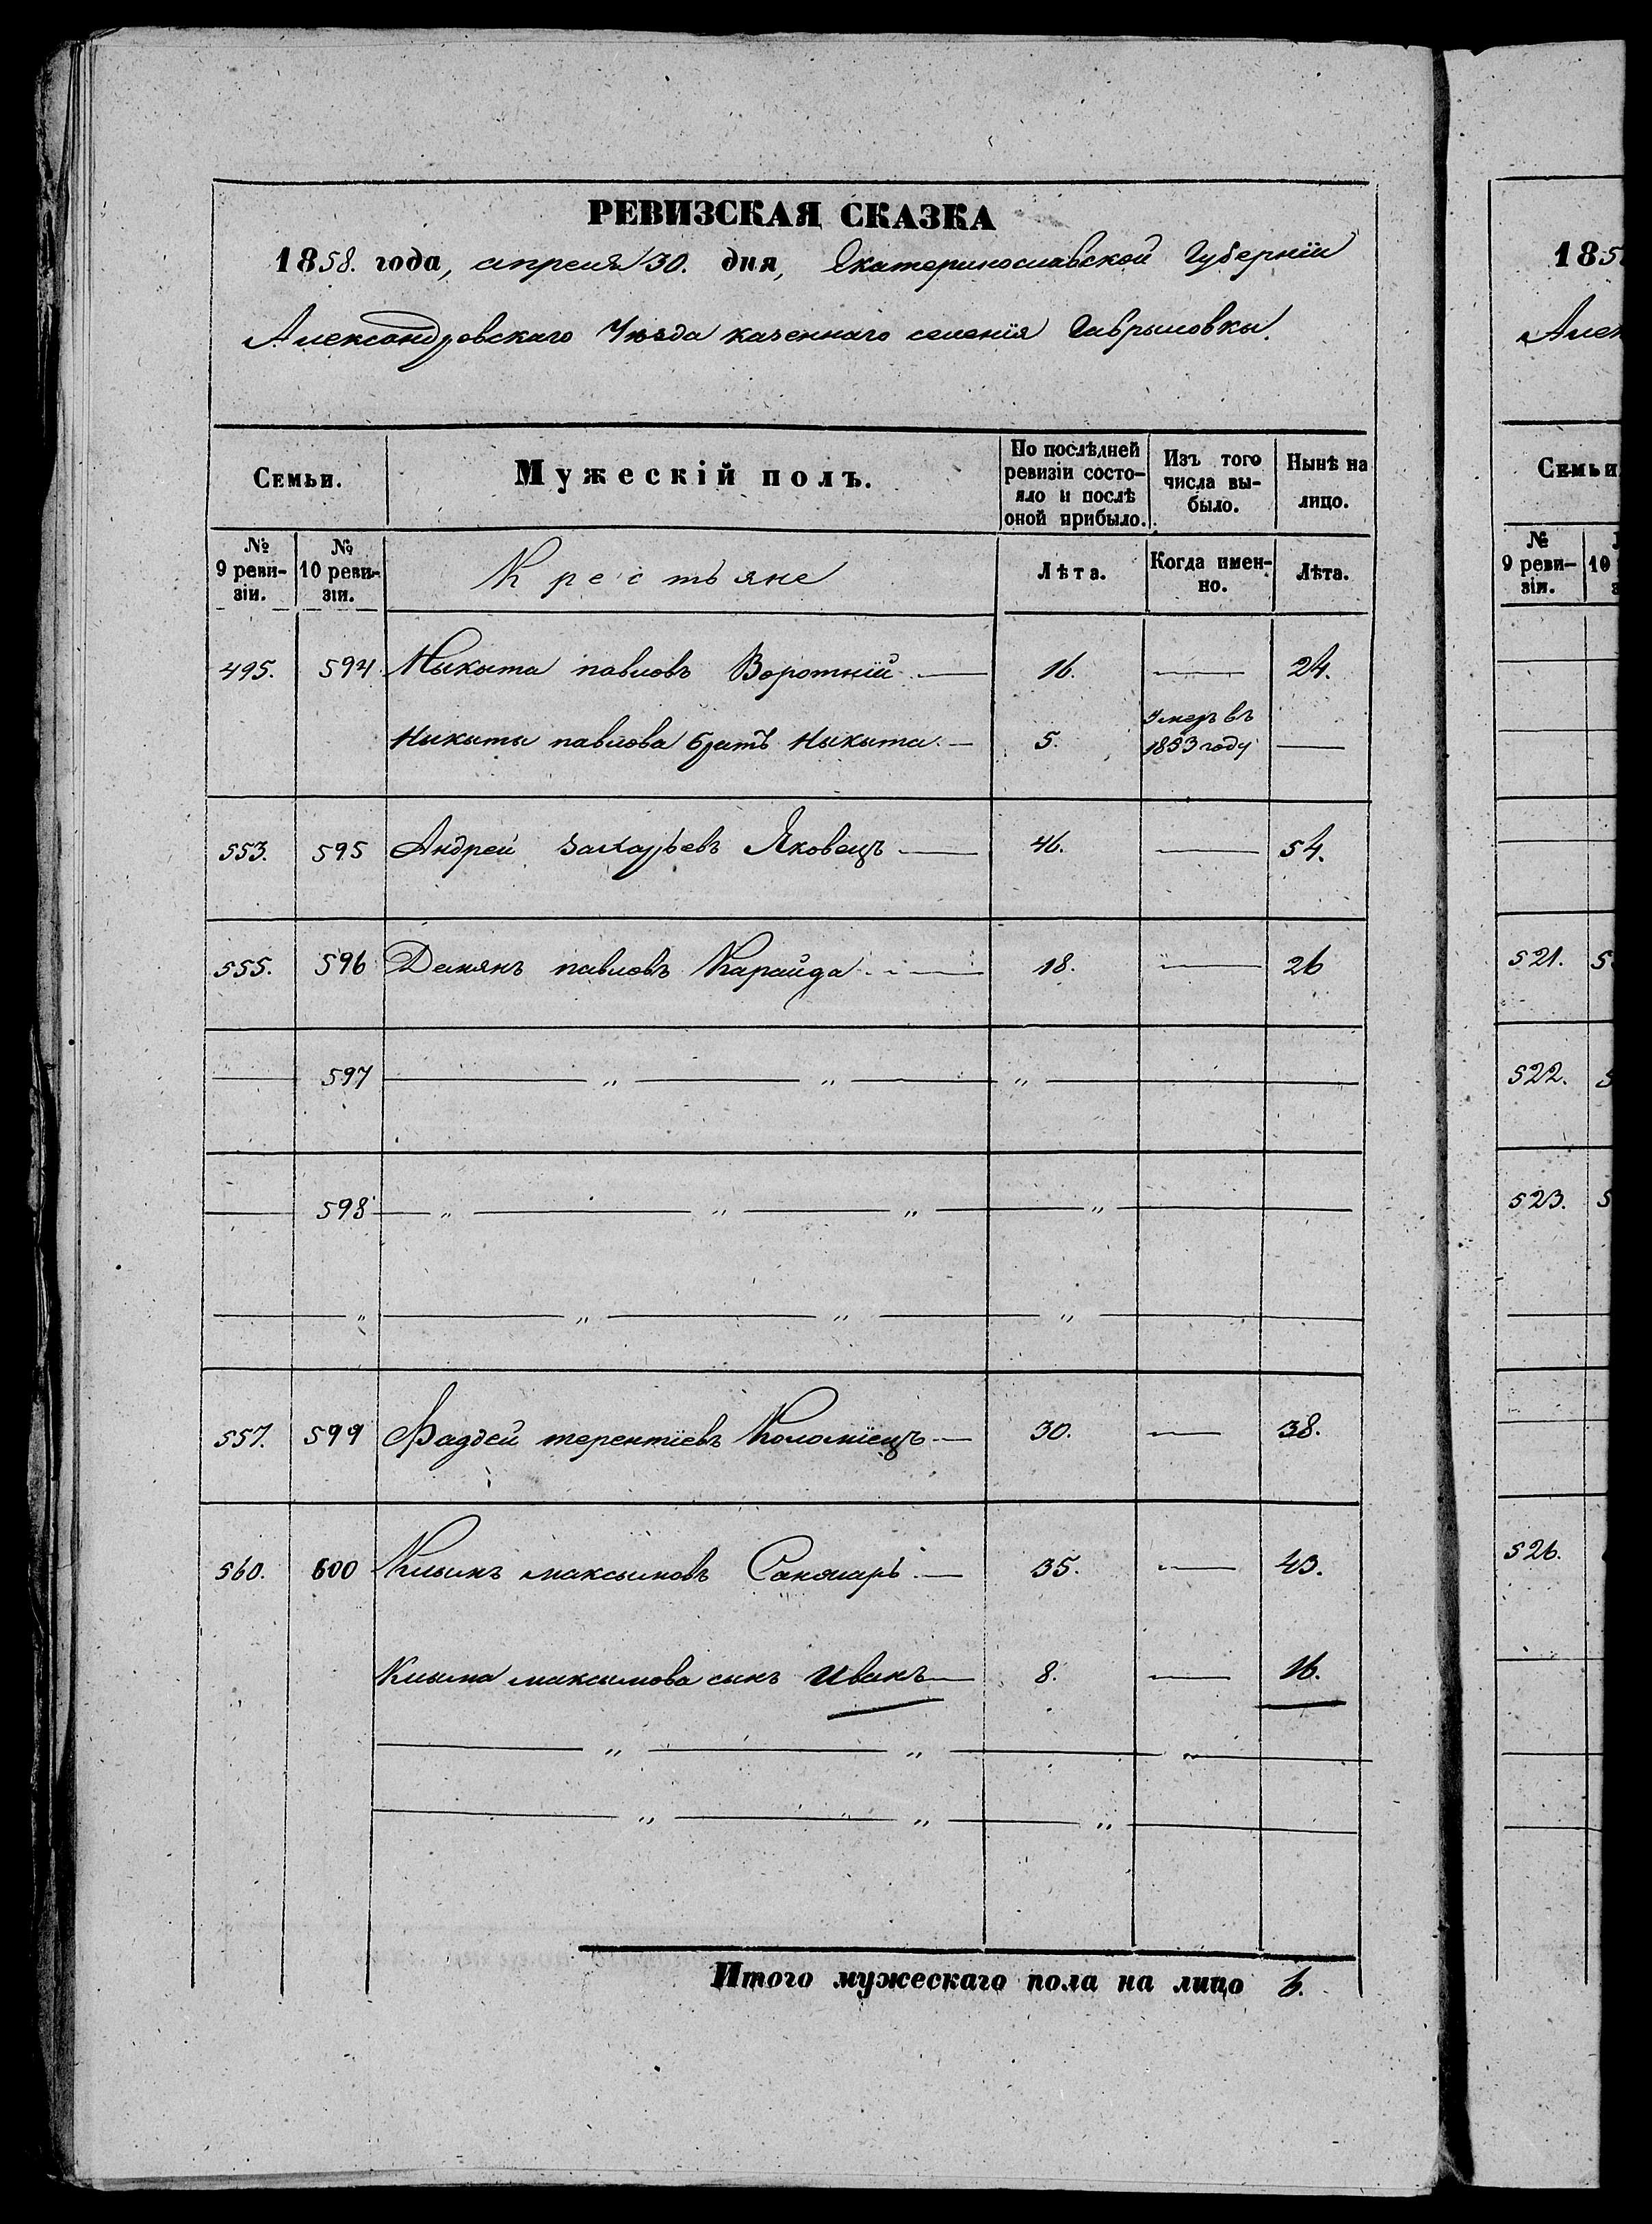 РЕВИЗСКАЯ СКАЗКА
1858. года, апреля 30. дня, Екатеринославской Губернїи
Александровскаго Уѣзда казеннаго селенїя Гаврыловкы.
Семьи. Мужескій полъ. По послѣдней ревизіи состо-яло и послѣ оной прибыло. Изъ того числа вы-было. Нынѣ на лицо.
№ 9 реви-зіи. № 10 реви-зіи. Крестьяне Лѣта. Когда имен-но. Лѣта.
495. 594 Ныкыта павловъ Воротнїй 16. 24.
Ныкыты павлова братъ Ныкыта 5. Умеръ въ 1853 году
553. 595 Андрей Захарьевъ Яковецъ 46. 54.
555. 596 Демянъ павловъ Карайда 18. 26
597 " " "
598 " " " "
" " " "
557. 599 Фаддей терентїевъ Коломїецъ 30. 38.
560. 600 Клымъ максымовъ 35. 43.
Клыма максымова сынъ Иванъ 8. 16.
" " "
" " "
Итого мужескаго пола на лицо 6.
185
Алек
Семьи
№ 9 реви-зіи. 10
521. 5
522. 5
523. 5
526.